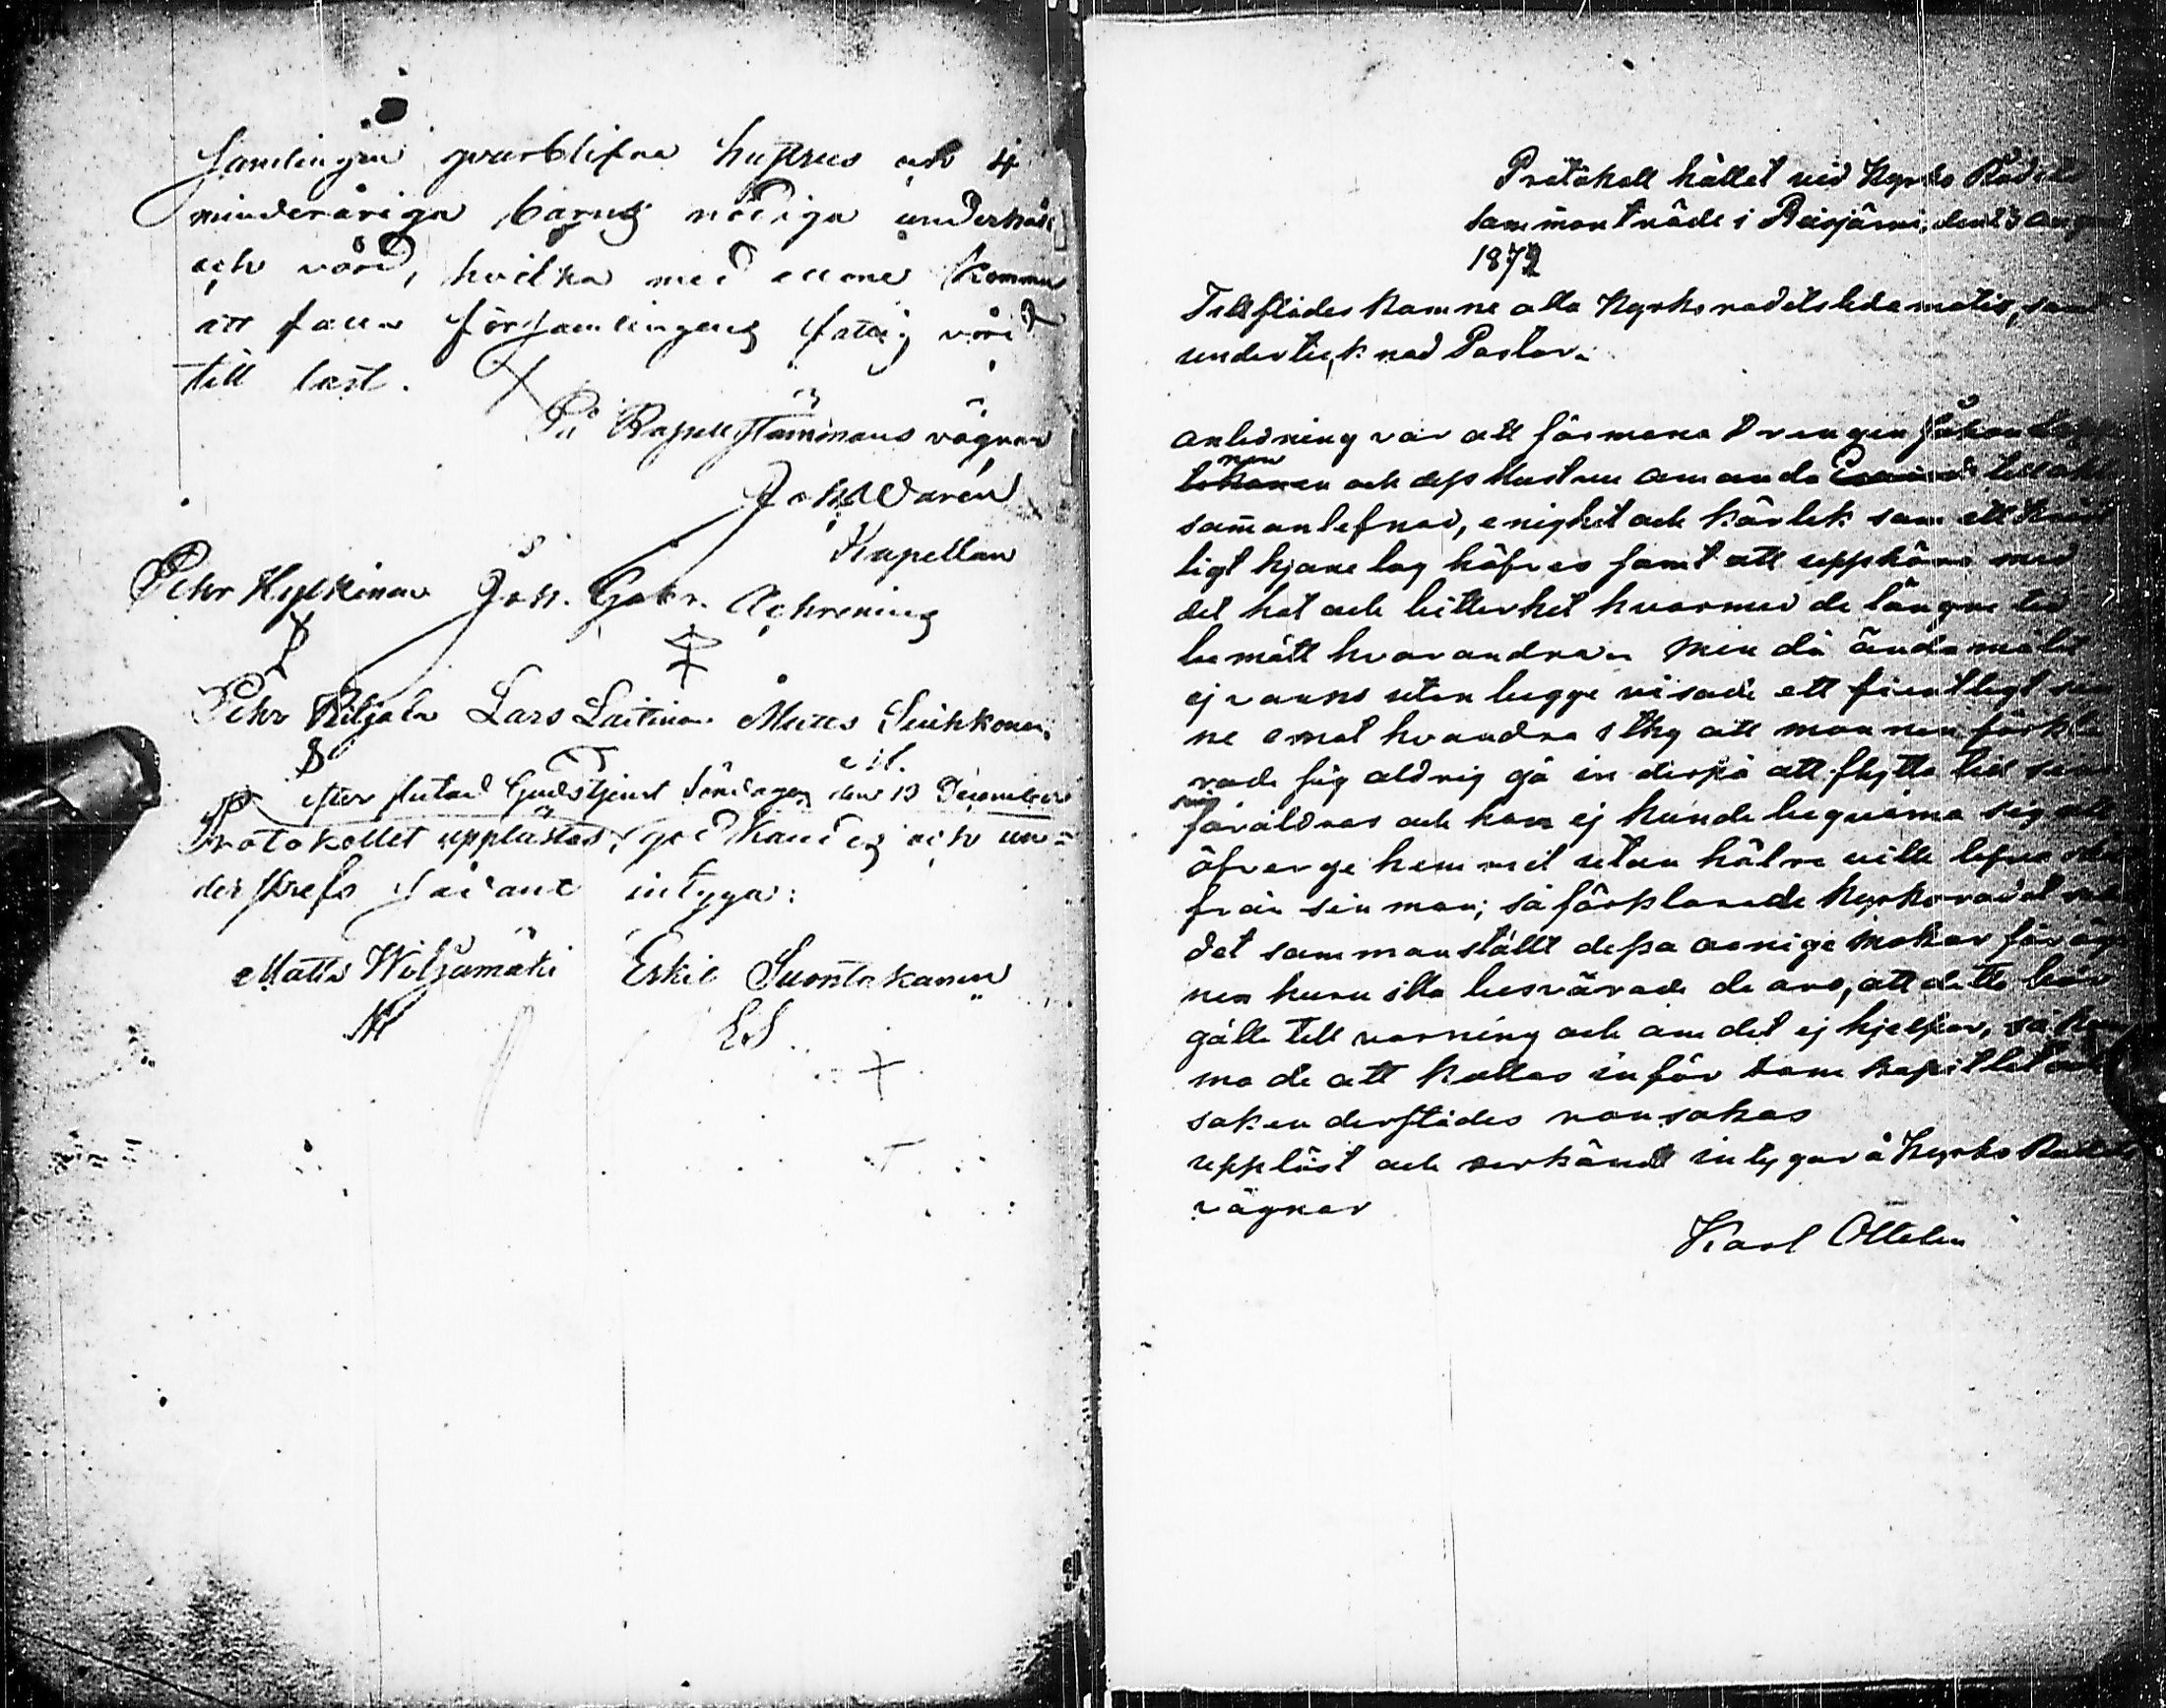 samlingen qvarblifna hustrus och 4
minderåriga barns nödiga underhåll
och vård, hvilka med ena komma
att falla församlingens fattig vård
till last.
På Kapellstämmans vägnar
Joh Warén
Kapellan
Pehr Hylkinen Joh. Gabr. Achrenius
Pehr Kiljala Lars Laitinen Matts Suihkonen
efter slutad Gudstjenst Söndagen den 13 December
Protokollet upplästes, godkändes och un-
derskrefs sådant intyga:
Matts Wiljamäki Eskil Suontakanen
ES
Protokoll hållet vid Kyrko Rådets
sammanträde i Reisjärvi, den 23 Aug
1872
Tillstädes kommo alla Kyrkorådetsledamöter, samt
undertecknad Pastor.
Anledning var att förmana Drengen Johan
och dess hustru Amanda till
samanlefnad, enighet och kärlek som ett
ligt hjonelag höfves samt att upphöra med
det hat och bitterhet hvarmed de längre tid
bemött hvarandra. Men då ändamålet
ej vanns utan begge visade ett fientligt sin
ne emot hvandra såg att mannen förkla
rade sig aldrig gå in derpå att flytta till sina
sing
föräldrar och hon ej kunde beqväma sig att
öfverge hemmet utan hälre ville lefva
från sin man; så förklarade Kyrkorådet med
det sammanställt dessa oenige makar för ög
nen huru illa besvärade de äro, att detta bör
gälla till varning och om det ej hjelper, så kom
ma de att kallas inför Dom kapitlet och
saken derstädes ransakas
uppläst och verkändt intygar å Kyrko Rådets
vägnar
Karl Ottelin